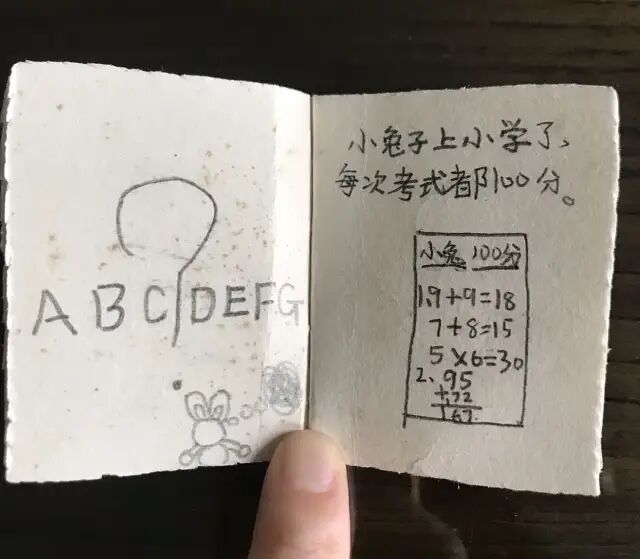 ABCDEFG
小兔子上小学了、
每次考式都100分。
小兔 100分
1、9+9=18
7+8=15
5×6=30
2、95
+72
167